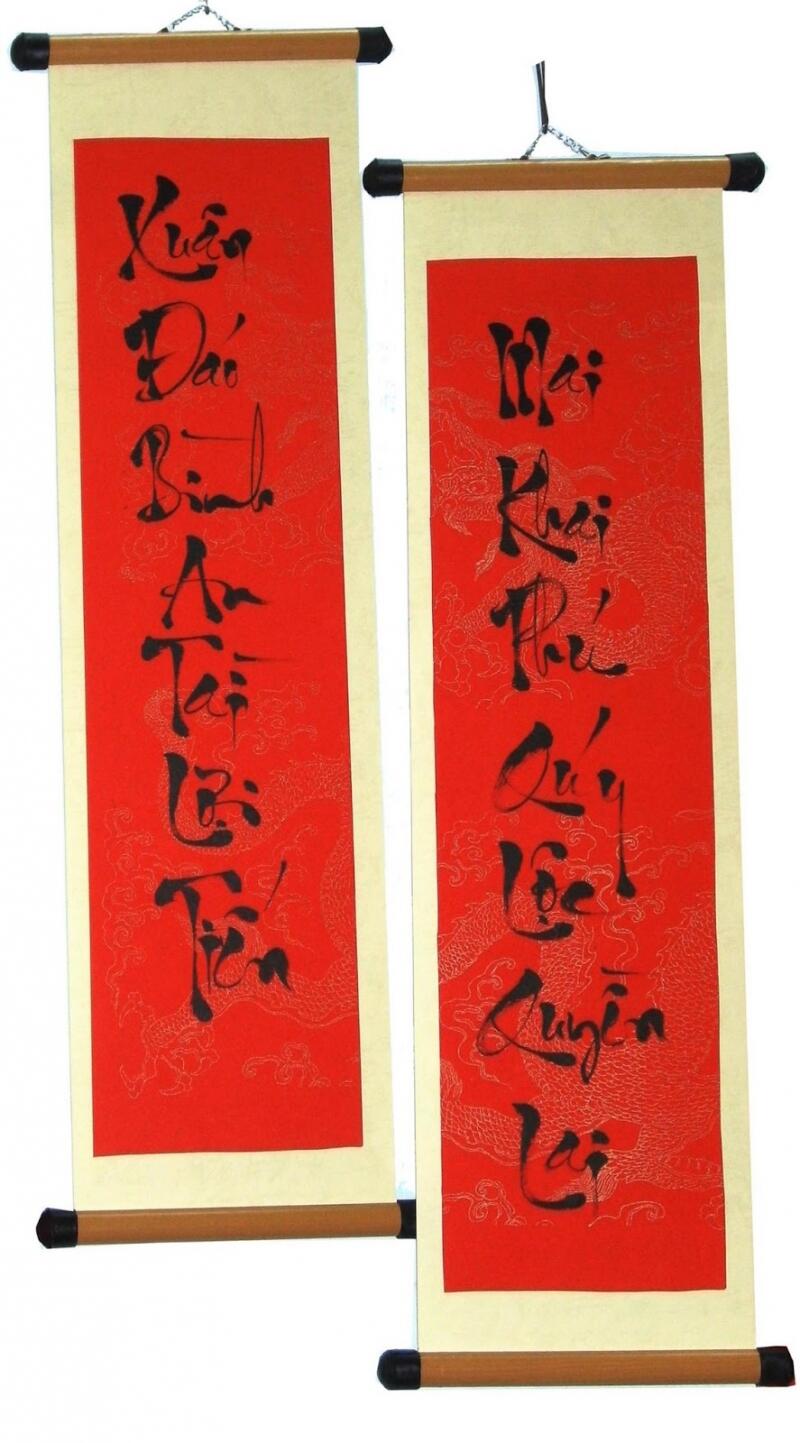 Xuân
Đáo
Bình
An
Tài
Lợi
Tiến
Mai
Khai
Phú
Qúy
Lộc
Quyền
Lai